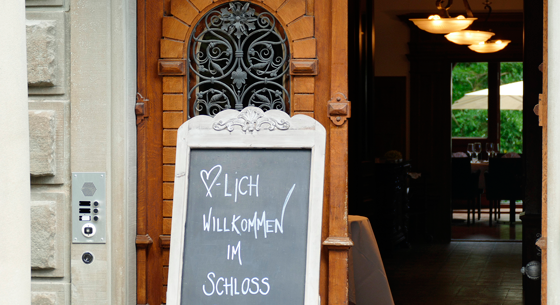 ♡-LICH
WILLKOMMEN
IM
SCHLOSS